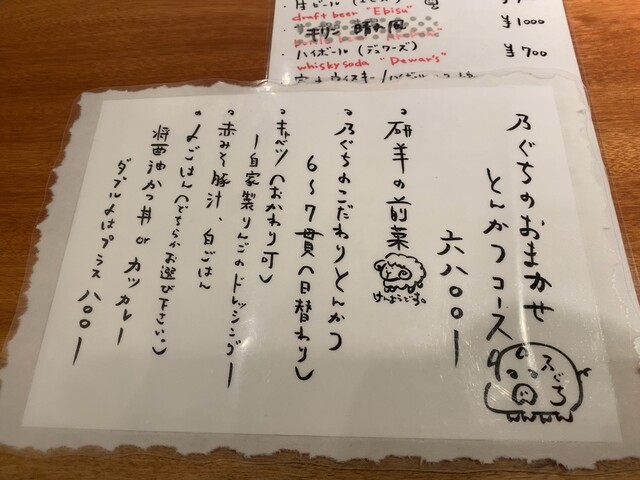 生ビール
draft beer "Ebisu"
キリン 晴れ風
¥1000
ハイボール (デュワーズ)
¥700
whisky soda "Dewar's"
乃ぐちのおまかせ
とんかつコース
六八〇〇ー
スジち
。研羊の前菜
けんようです。
。乃ぐちのこだわりとんかつ
6〜7貫(日替わり)
。キャベツ(おかわり可)
ー自家製りんごのドレッシングー
。赤みそ豚汁、白ごはん
。〆ごはん(どちらかお選び下さい。)
醤油かつ丼 or カツカレー
ダブル〆はプラス八〇〇ー